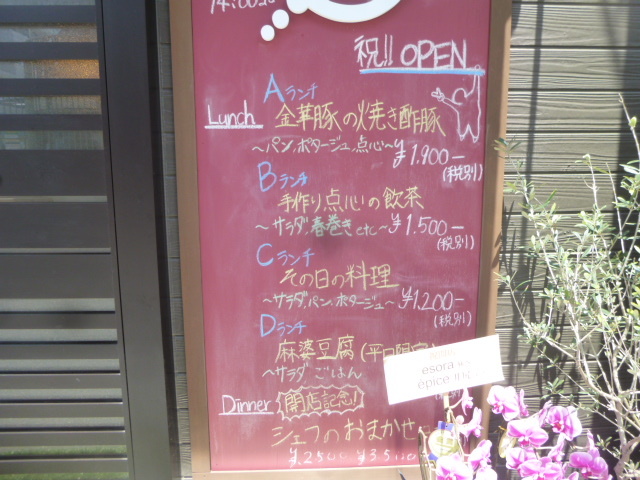 14:00
祝!! OPEN
Aランチ
Lunch 金華豚の焼き酢豚
～パン,ポタージュ,点心～¥1.900-
(税別)
Bランチ
手作り点心の飲茶
～サラダ,春巻きetc～¥1.500-
(税別)
Cランチ
その日の料理
～サラダ,パン,ポタージュ～¥1.200-
(税別)
Dランチ
麻婆豆腐(平日限定)
～サラダ ごはん
Dinner 開店記念!
シェフのおまかせ
¥.2500 ¥3500
esora
épice